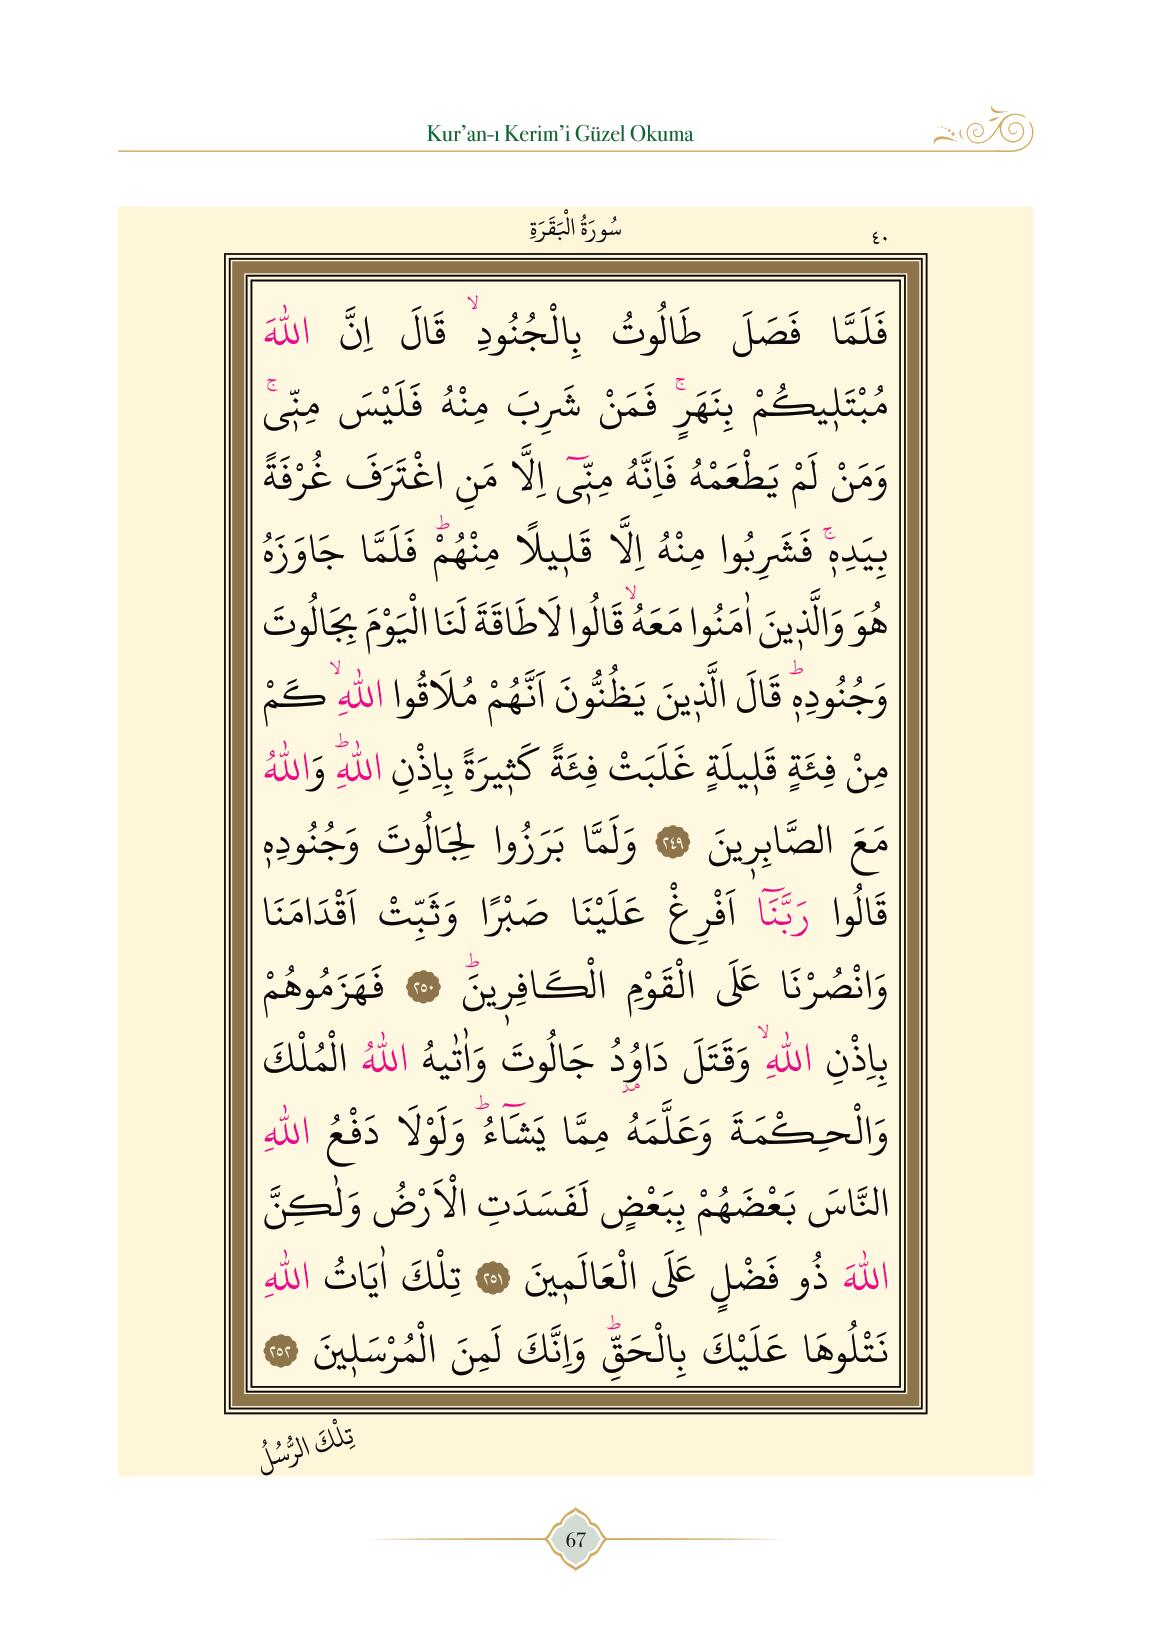 Kur’an-ı Kerim’i Güzel Okuma
سُورَةُ الْبَقَرَةِ ٤٠
فَلَمَّا فَصَلَ طَالُوتُ بِالْجُنُودِۙ قَالَ اِنَّ اللّٰهَ
مُبْتَل۪يكُمْ بِنَهَرٍۚ فَمَنْ شَرِبَ مِنْهُ فَلَيْسَ مِنّ۪يۚ
وَمَنْ لَمْ يَطْعَمْهُ فَاِنَّهُ مِنّ۪ٓي اِلَّا مَنِ اغْتَرَفَ غُرْفَةً
بِيَدِه۪ۚ فَشَرِبُوا مِنْهُ اِلَّا قَل۪يلًا مِنْهُمْۜ فَلَمَّا جَاوَزَهُ
هُوَ وَالَّذ۪ينَ اٰمَنُوا مَعَهُۙ قَالُوا لَا طَاقَةَ لَنَا الْيَوْمَ بِجَالُوتَ
وَجُنُودِه۪ۜ قَالَ الَّذ۪ينَ يَظُنُّونَ اَنَّهُمْ مُلَاقُوا اللّٰهِۙ كَمْ
مِنْ فِئَةٍ قَل۪يلَةٍ غَلَبَتْ فِئَةً كَث۪يرَةً بِاِذْنِ اللّٰهِۜ وَاللّٰهُ
مَعَ الصَّابِر۪ينَ ٢٤٩ وَلَمَّا بَرَزُوا لِجَالُوتَ وَجُنُودِه۪
قَالُوا رَبَّنَٓا اَفْرِغْ عَلَيْنَا صَبْرًا وَثَبِّتْ اَقْدَامَنَا
وَانْصُرْنَا عَلَى الْقَوْمِ الْكَافِر۪ينَۜ ٢٥٠ فَهَزَمُوهُمْ
بِاِذْنِ اللّٰهِۙ وَقَتَلَ دَاوُ۫دُ جَالُوتَ وَاٰتٰيهُ اللّٰهُ الْمُلْكَ
وَالْحِكْمَةَ وَعَلَّمَهُ مِمَّا يَشَٓاءُۜ وَلَوْلَا دَفْعُ اللّٰهِ
النَّاسَ بَعْضَهُمْ بِبَعْضٍ لَفَسَدَتِ الْاَرْضُ وَلٰكِنَّ
اللّٰهَ ذُو فَضْلٍ عَلَى الْعَالَم۪ينَ ٢٥١ تِلْكَ اٰيَاتُ اللّٰهِ
نَتْلُوهَا عَلَيْكَ بِالْحَقِّۜ وَاِنَّكَ لَمِنَ الْمُرْسَل۪ينَ ٢٥٢
تِلْكَ الرُّسُلُ
67